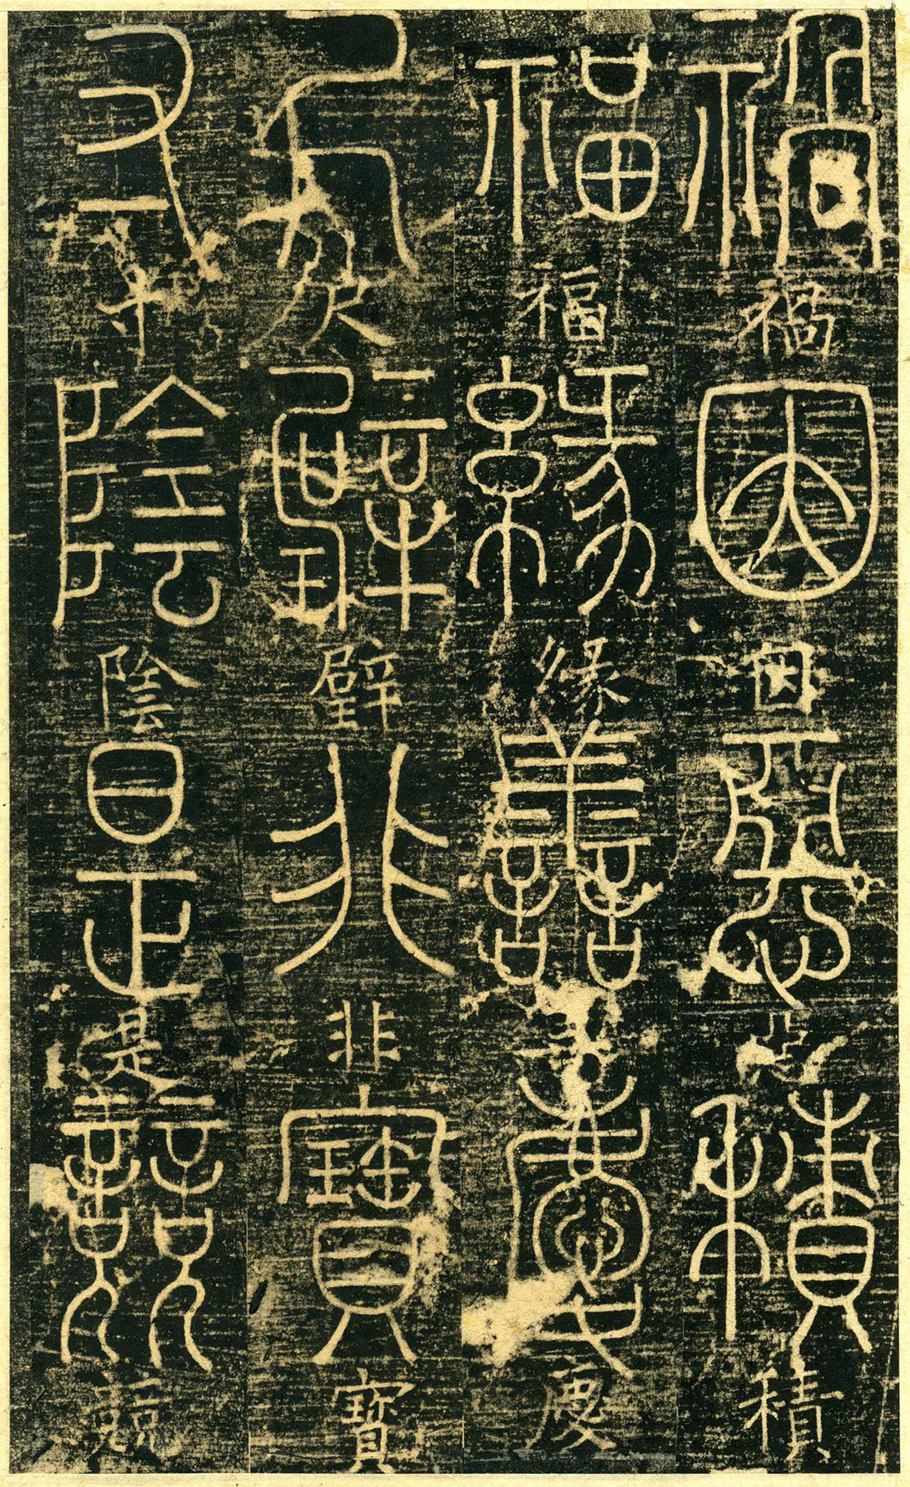 禍禍因因惡惡積積
福福緣緣善慶慶
尺尺璧璧非非寶寶
寸寸陰陰是是競競